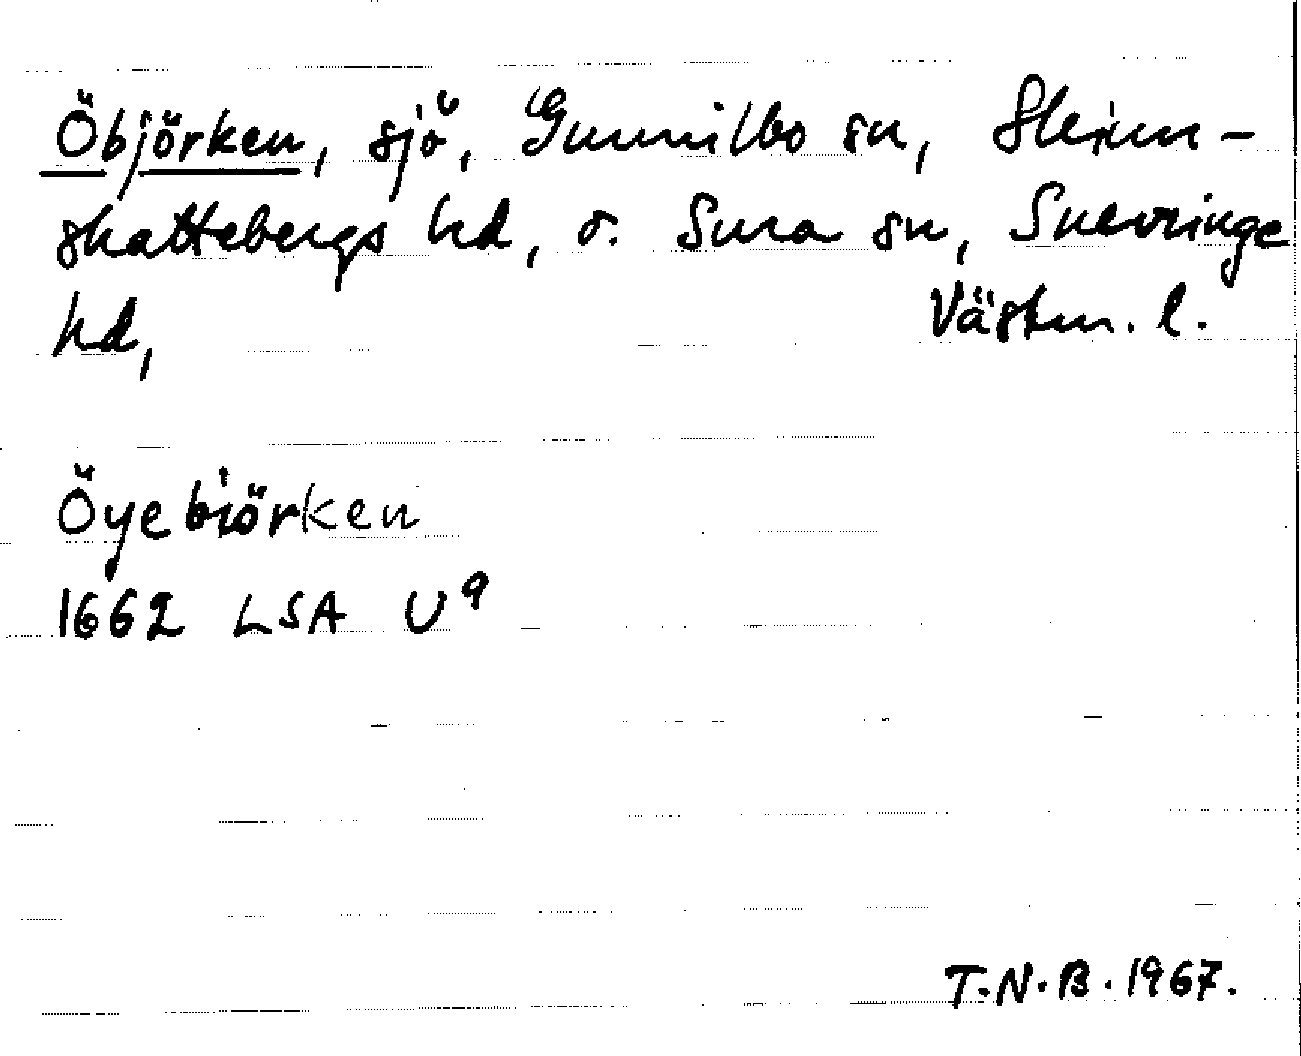 Öbjörken, sjö, Gunnilbo sn, Skinn-
skattebergs hd, o. Sura sn, Snevringe
hd, Västm. l.
Öyebiörken
1662 LSA U9
T.N.B. 1967.